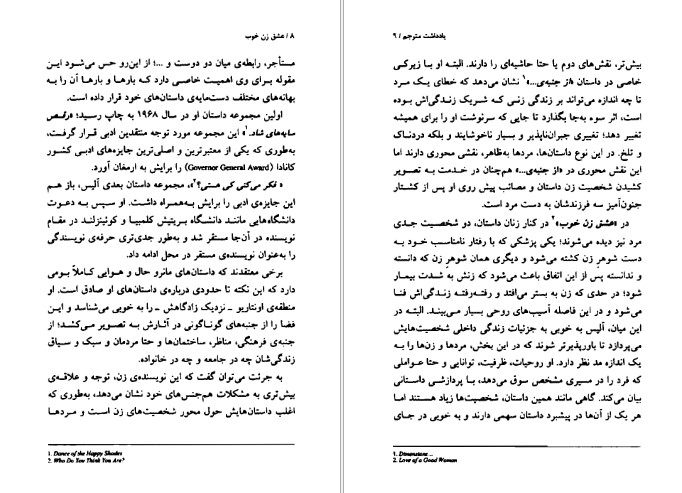 ۸ / عشق زن خوب
مستأجر، رابطه‌ی میان دو دوست و ...؛ از این‌رو حس می‌شود این
مقوله برای وی اهمیت خاصی دارد که بارها و بارها آن را به
بهانه‌های مختلف دست‌مایه‌ی داستان‌های خود قرار داده است.
اولین مجموعه داستان او در سال ۱۹۶۸ به چاپ رسید؛ «رقص
سایه‌های شاد.»۱ این مجموعه مورد توجه منتقدین ادبی قرار گرفت،
به‌طوری که یکی از معتبرترین و اصلی‌ترین جایزه‌های ادبی کشور
کانادا (Governor General Award) را برایش به ارمغان آورد.
«فکر می‌کنی کی هستی؟»۲، مجموعه داستان بعدی آلیس، باز هم
این جایزه‌ی ادبی را برایش به‌همراه داشت. او سپس به دعوت
دانشگاه‌هایی مانند دانشگاه بریتیش کلمبیا و کوئینزلند در مقام
نویسنده در آن‌جا مستقر شد و به‌طور جدی‌تری حرفه‌ی نویسندگی
را به‌عنوان نویسنده‌ی مستقر در محل ادامه داد.
برخی معتقدند که داستان‌های مانرو حال و هوایی کاملاً بومی
دارد که این نکته تا حدودی درباره‌ی داستان‌های او صادق است. او
منطقه‌ی اونتاریو ـ نزدیک زادگاهش ـ را به خوبی می‌شناسد و این
فضا را از جنبه‌های گوناگونی در آثارش به تصویر می‌کشد؛ از
جنبه‌ی فرهنگی، مناظر، ساختمان‌ها و حتا مردمان و سبک و سیاق
زندگی‌شان چه در جامعه و چه در خانواده.
به جرئت می‌توان گفت که این نویسنده‌ی زن، توجه و علاقه‌ی
بیش‌تری به مشکلات هم‌جنس‌های خود نشان می‌دهد، به‌طوری که
اغلب داستان‌هایش حول محور شخصیت‌های زن است و مردها
1. Dance of the Happy Shades
2. Who Do You Think You Are?
یادداشت مترجم / ۹
بیش‌تر، نقش‌های دوم یا حتا حاشیه‌ای را دارند. البته او با زیرکی
خاصی در داستان «از جنبه‌ی...»۱ نشان می‌دهد که خطای یک مرد
تا چه اندازه می‌تواند بر زندگی زنی که شریک زندگی‌اش بوده
است، اثر سوء به‌جا بگذارد تا جایی که سرنوشت او را برای همیشه
تغییر دهد؛ تغییری جبران‌ناپذیر و بسیار ناخوشایند و بلکه دردناک
و تلخ. در این نوع داستان‌ها، مردها به‌ظاهر، نقشی محوری دارند اما
این نقش محوری در «از جنبه‌ی...» هم‌چنان در خدمت به تصویر
کشیدن شخصیت زن داستان و مصائب پیش روی او پس از کشتار
جنون‌آمیز سه فرزندشان به دست مرد است.
در «عشق زن خوب»۲ در کنار زنان داستان، دو شخصیت جدی
مرد نیز دیده می‌شوند؛ یکی پزشکی که با رفتار نامناسب خود به
دست شوهرِ زن کشته می‌شود و دیگری همان شوهرِ زن که دانسته
و ندانسته پس از این اتفاق باعث می‌شود که زنش به شدت بیمار
شود؛ در حدی که زن به بستر می‌افتد و رفته‌رفته زندگی‌اش فنا
می‌شود و در این فاصله آسیب‌های روحی بسیار می‌بیند. البته در
این میان، آلیس به خوبی به جزئیات زندگی داخلی شخصیت‌هایش
می‌پردازد تا باورپذیرتر شوند که در این بخش، مردها و زن‌ها را به
یک اندازه مد نظر دارد. او روحیات، ظرفیت، توانایی و حتا عواملی
که فرد را در مسیری مشخص سوق می‌دهد، با پردازشی داستانی
بیان می‌کند. گاهی مانند همین داستان، شخصیت‌ها زیاد هستند اما
هر یک از آن‌ها در پیشبرد داستان سهمی دارند و به خوبی در جای
1. Dimensions ...
2. Love of a Good Woman